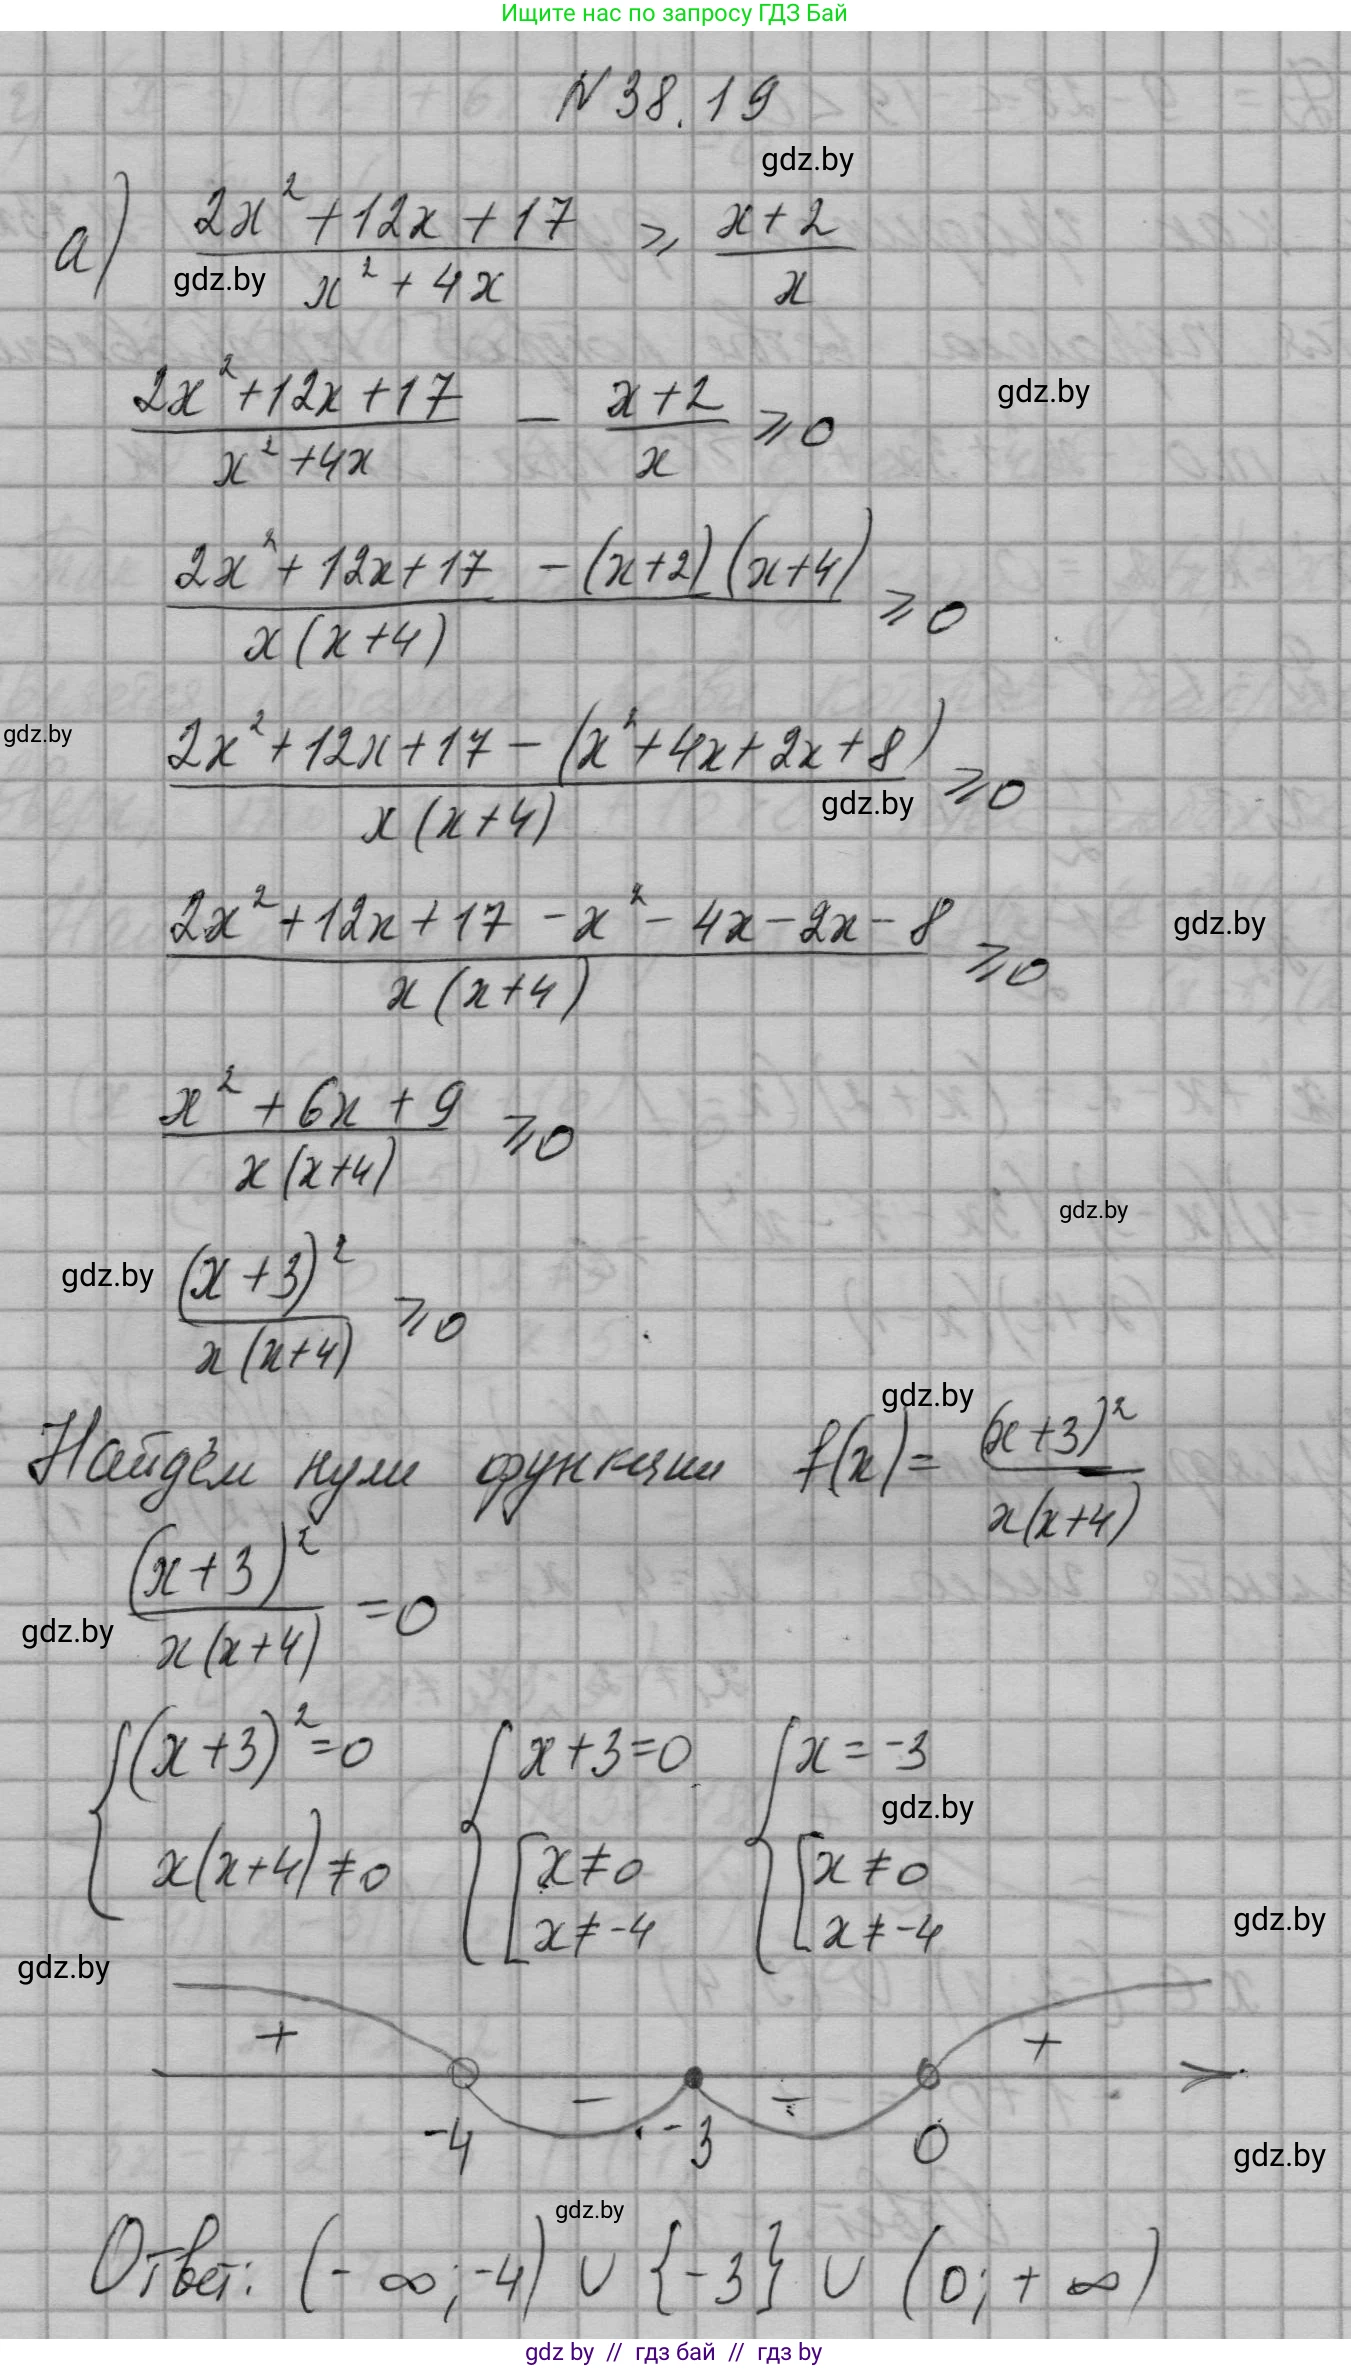 Ищите нас по запросу ГДЗ Бай
N 38.19
gdz.by
а) (2x² + 12x + 17)/(x² + 4x) ⩾ (x + 2)/x
gdz.by
(2x² + 12x + 17)/(x² + 4x) − (x + 2)/x ⩾ 0
gdz.by
(2x² + 12x + 17 − (x+2)(x+4))/(x(x+4)) ⩾ 0
gdz.by
(2x² + 12x + 17 − (x² + 4x + 2x + 8))/(x(x+4)) ⩾ 0
gdz.by
(2x² + 12x + 17 − x² − 4x − 2x − 8)/(x(x+4)) ⩾ 0
gdz.by
(x² + 6x + 9)/(x(x+4)) ⩾ 0
gdz.by
gdz.by
(x + 3)²/(x(x+4)) ⩾ 0
gdz.by
Найдём нули функции f(x) = (x+3)²/(x(x+4))
(x+3)²/(x(x+4)) = 0
gdz.by
{ (x+3)² = 0 { x+3=0 { x = -3
gdz.by
x(x+4) ≠ 0 [ x ≠ 0 [ x ≠ 0
x ≠ -4 x ≠ -4
gdz.by
gdz.by
+ − − +
-4 -3 0
gdz.by
gdz.by
Ответ: (- ∞; -4) ∪ {-3} ∪ (0; + ∞)
gdz by // гдз бай // гдз by